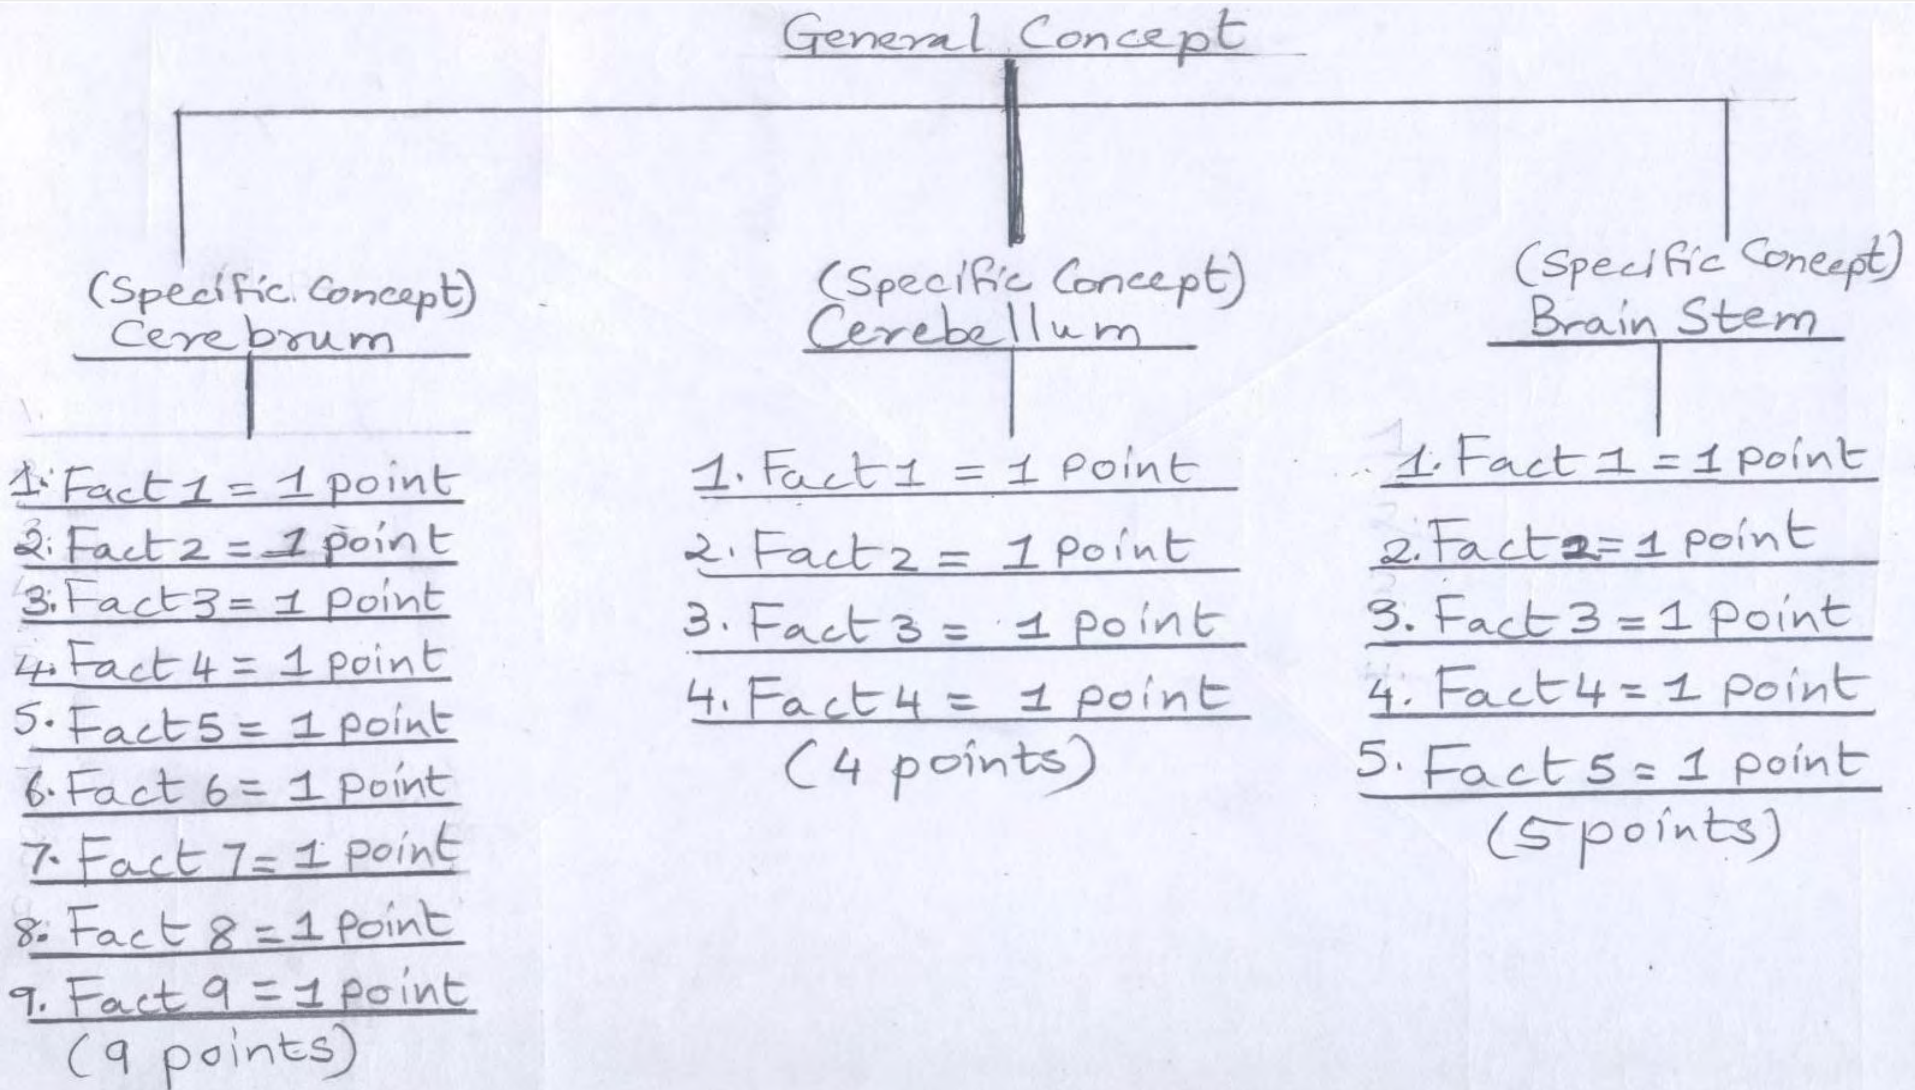 General Concept
(Specific Concept)
Cerebrum
1. Fact 1 = 1 point
2. Fact 2 = 1 point
3. Fact 3 = 1 Point
4. Fact 4 = 1 point
5. Fact 5 = 1 point
6. Fact 6 = 1 point
7. Fact 7 = 1 point
8. Fact 8 = 1 Point
9. Fact 9 = 1 point
(9 points)
(Specific Concept)
Cerebellum
1. Fact 1 = 1 Point
2. Fact 2 = 1 Point
3. Fact 3 = 1 point
4. Fact 4 = 1 point
(4 points)
(Specific Concept)
Brain Stem
1. Fact 1 = 1 point
2. Fact 2 = 1 point
3. Fact 3 = 1 Point
4. Fact 4 = 1 Point
5. Fact 5 = 1 point
(5 points)